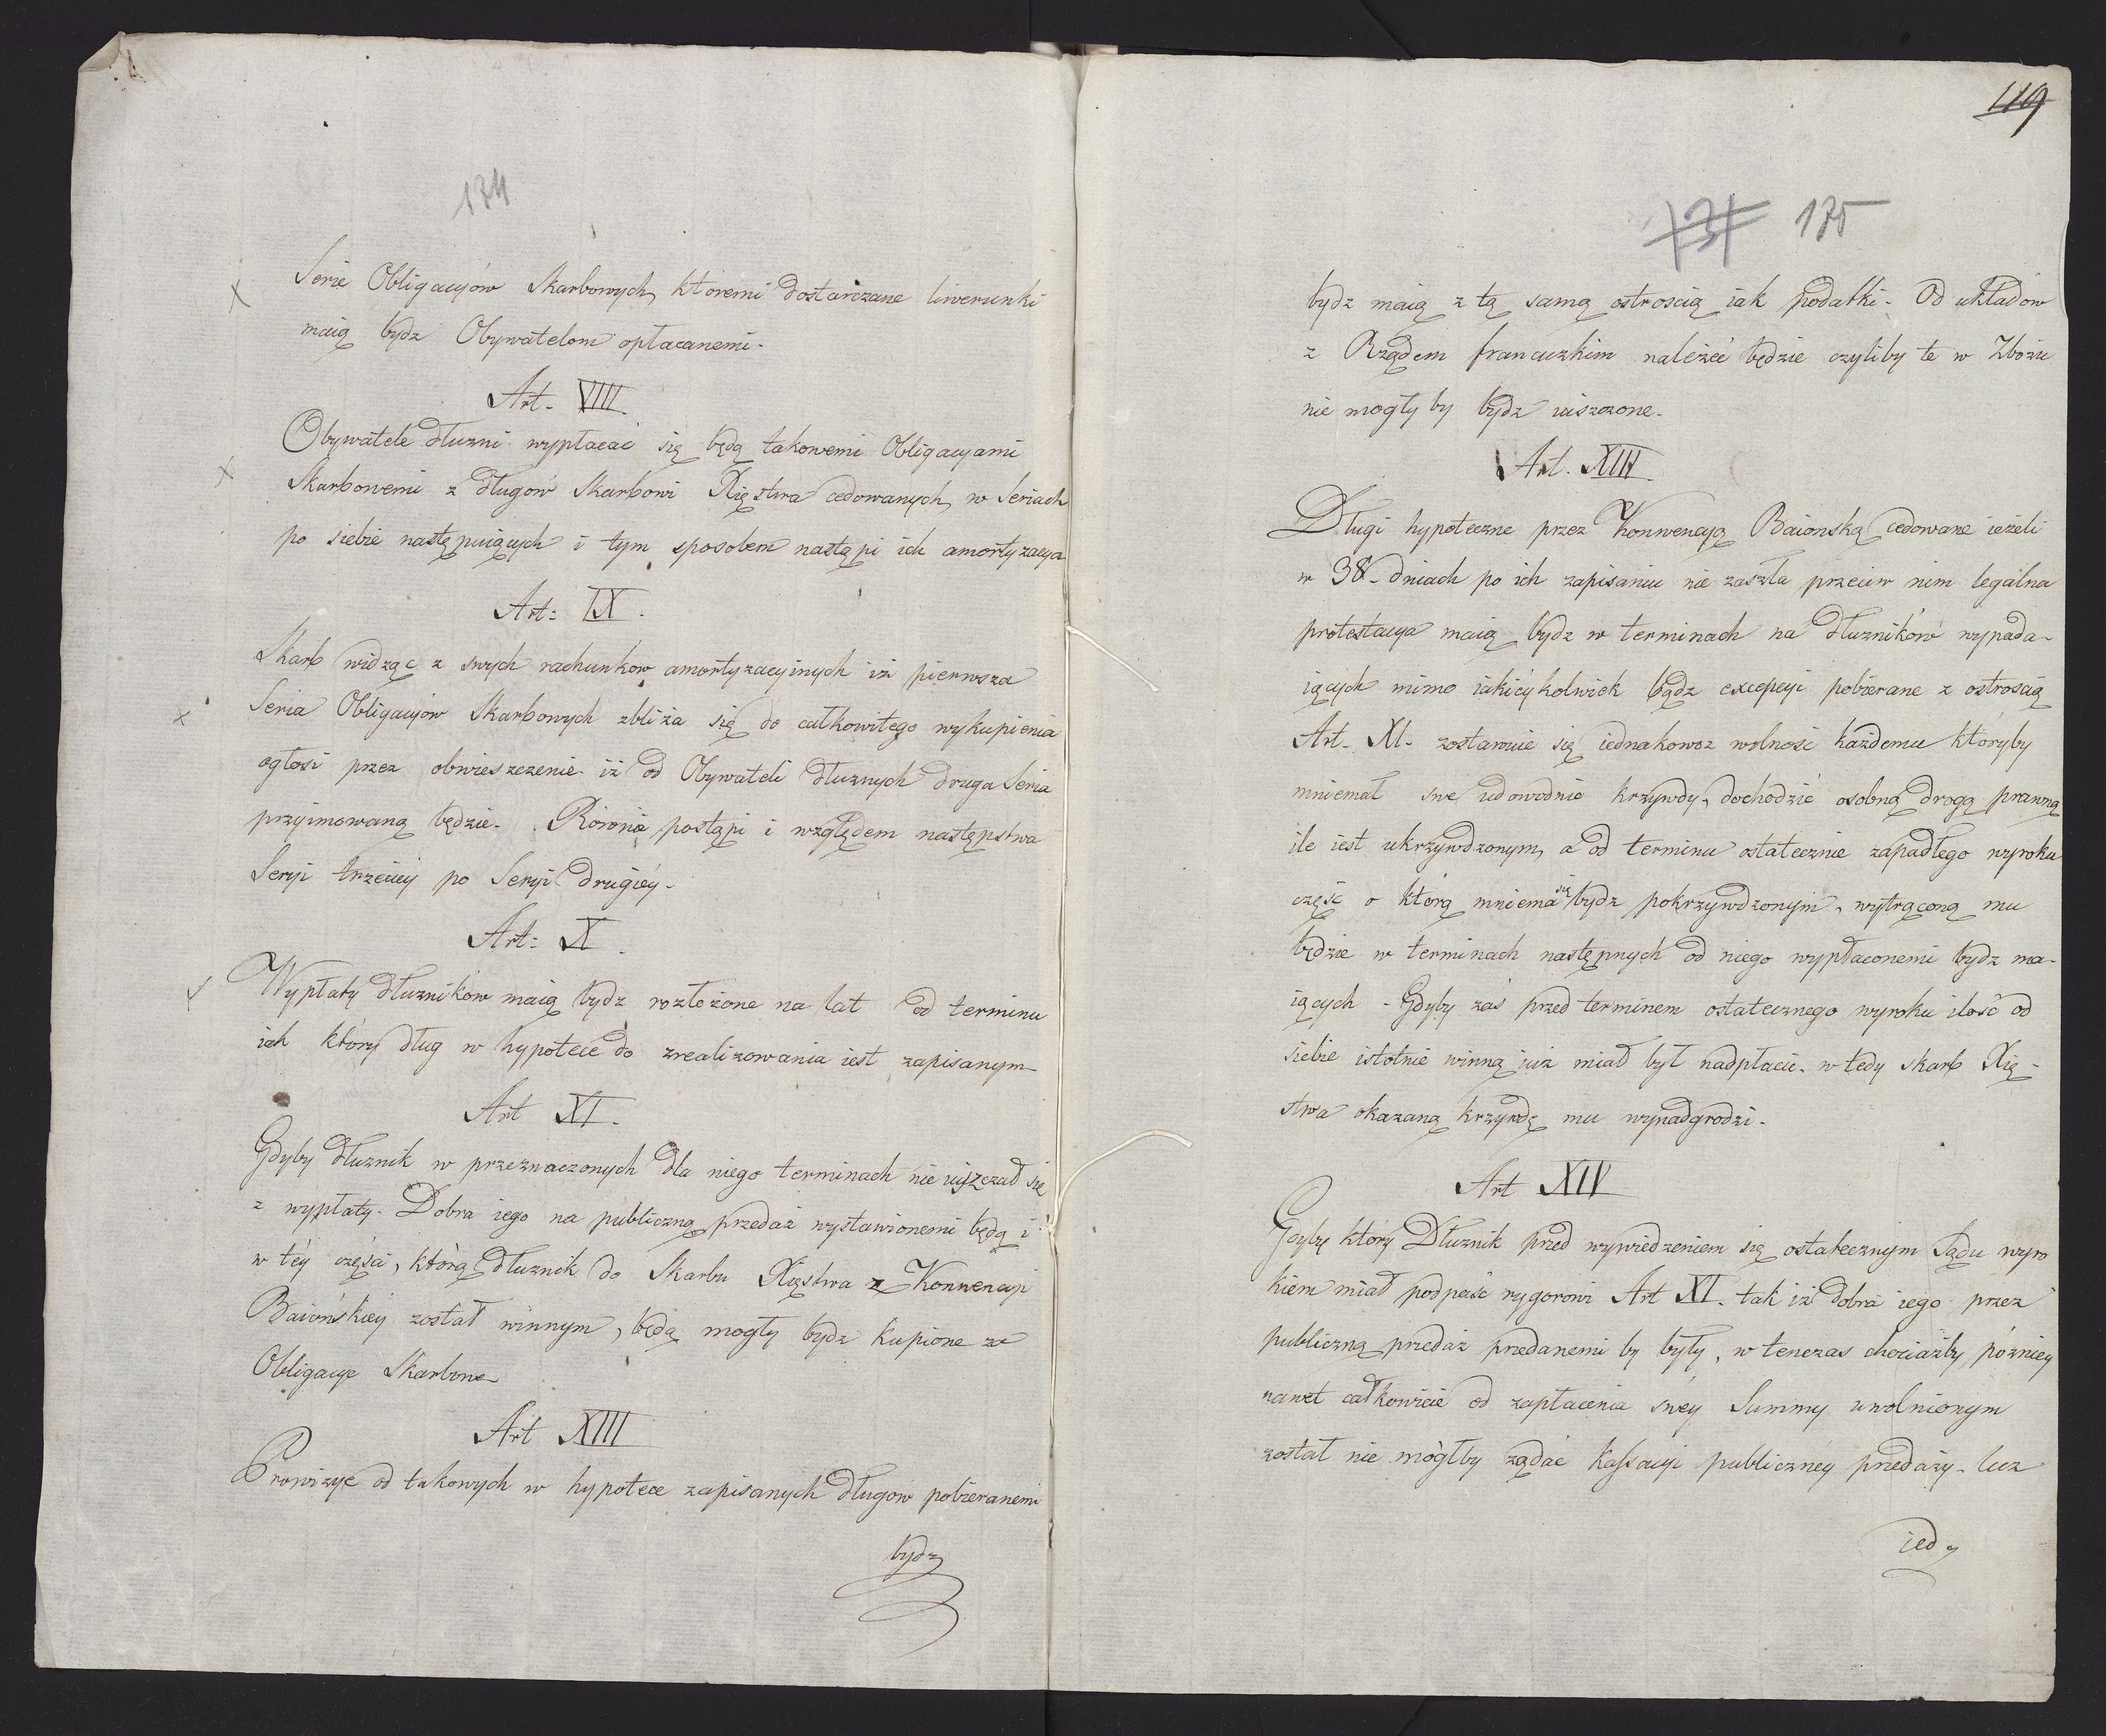 134
Serie Obligacyów Skarbowych, któremi dostarczane liwerunki
maią bydz Obywatelom opłacanemi.
Art. VIII.
Obywatele dłuzni wypłacać się będą takowemi Obligacyami
Skarbowemi z długów Skarbowi Xięstwa cedowanych, w Seriach
po siebie następuiących i tym sposobem nastąpi ich amortyzacya
Art: IX.
Skarb widząc z swych rachunkow amortyzacyinych iż pierwsza
Seria Obligacyów Skarbowych zbliża się do całkowitego wykupienia
ogłosi przez obwieszczenie iż od Obywateli dłuznych druga Seria
przyimowaną będzie. Rownie postąpi i względem następstwa
Seryi trzeciey po Seryi drugiéy.
Art: X.
Wypłaty dłuzników maią bydz rozłożone na lat od terminu
iak który dług w hypotece do zrealizowania iest zapisanym
Art XI.
Gdyby dłuznik w przeznaczonych dla niego terminach nie uiszczał się
z wypłaty. Dobra iego na publiczną przedaż wystawionemi będą i
w téy części, którą dłuznik do Skarbu Xięstwa z Konwencyi
Baiońskiey został winnym, będą mogły bydz kupione za
Obligacye Skarbowe
Art XIII
Prowizye od takowych w hypotece zapisanych długow pobieranemi
bydz
119
131 135
bydz maią z tą samą ostroscią iak podatki. Od układów
z Rządem francuzkim należeć będzie czyliby te w Zbożu
nie mogły by bydz uiszczone.
Art. XIII
Długi hypoteczne przez Konwencyą Baionską cedowane ieżeli
w 38. dniach po ich zapisaniu nie zaszła przeciw nim legalna
protestacya maią bydz w terminach na dłuzników wypada-
iących mimo iakieykolwiek bądz excepcyi pobierane z ostroscią
Art. XI. zostawuie się iednakowoz wolność każdemu któryby
mniemał swe udowodnić krzywdy, dochodzić osobną drogą prawną
ile iest ukrzywdzonym, a od terminu ostatecznie zapadłego wyroku
część o którą mniema się bydz pokrzywdzonym, wytrąconą mu
będzie w terminach następnych od niego wypłaconemi bydz ma-
iących. Gdyby zaś przed terminem ostatecznego wyroku ilość od
siebie istotnie winną iuż miał był nadpłacić, w tedy skarb Xię-
stwa okazaną krzywdę mu wynadgrodzi.
Art XIV
Gdyby który Dłuznik przed wywiedzeniem się ostatecznym Sądu wyro
kiem miał podpaść rygorowi Art XI. tak iż dobra iego przez
publiczną przedaż przedanemi by były, w tenczas chociażby późniey
nawet całkowicie od zapłacenia swéy Summy uwolnionym
został nie mógłby ządać Kassacyi publicznéy przedaży. lecz
ied.